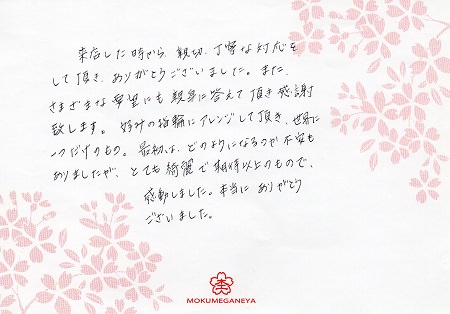 来店した時から、親切、丁寧な対応を
して頂き、ありがとうございました。また、
さまざまな希望にも親身に答えて頂き感謝
致します。好みの指輪にアレンジして頂き、世界に
一つだけのもの。最初は、どのようになるのか不安も
ありましたが、とても綺麗で期待以上のもので、
感動しました。本当に ありがとう
ございました。
MOKUMEGANEYA